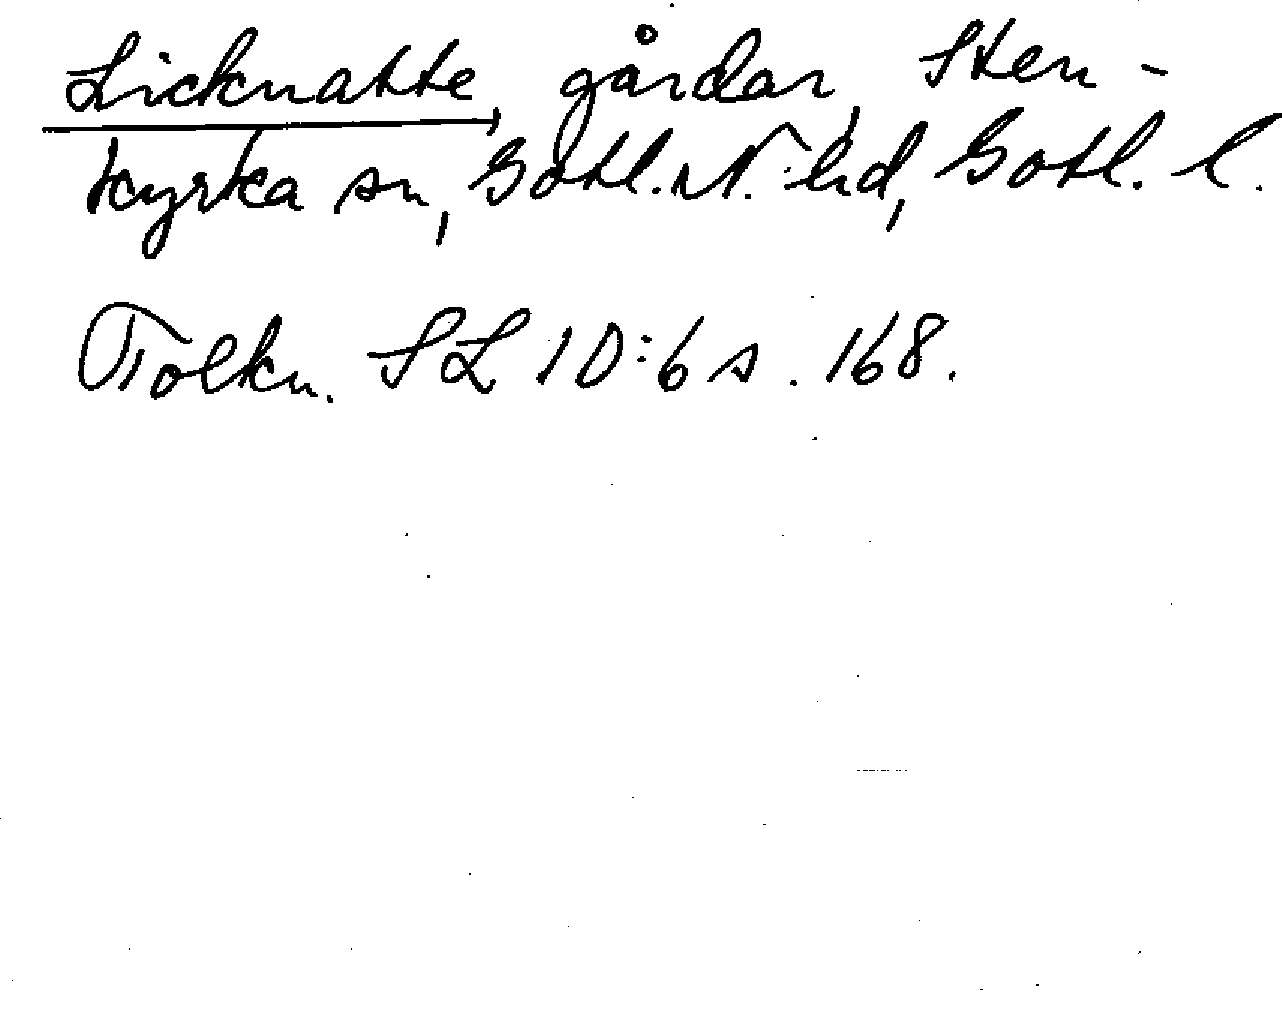 Licknatte, gårdar, Sten-
kyrka sn, Gotl. N. hd, Gotl. l.
Tolkn. SL 10:6 s. 168.